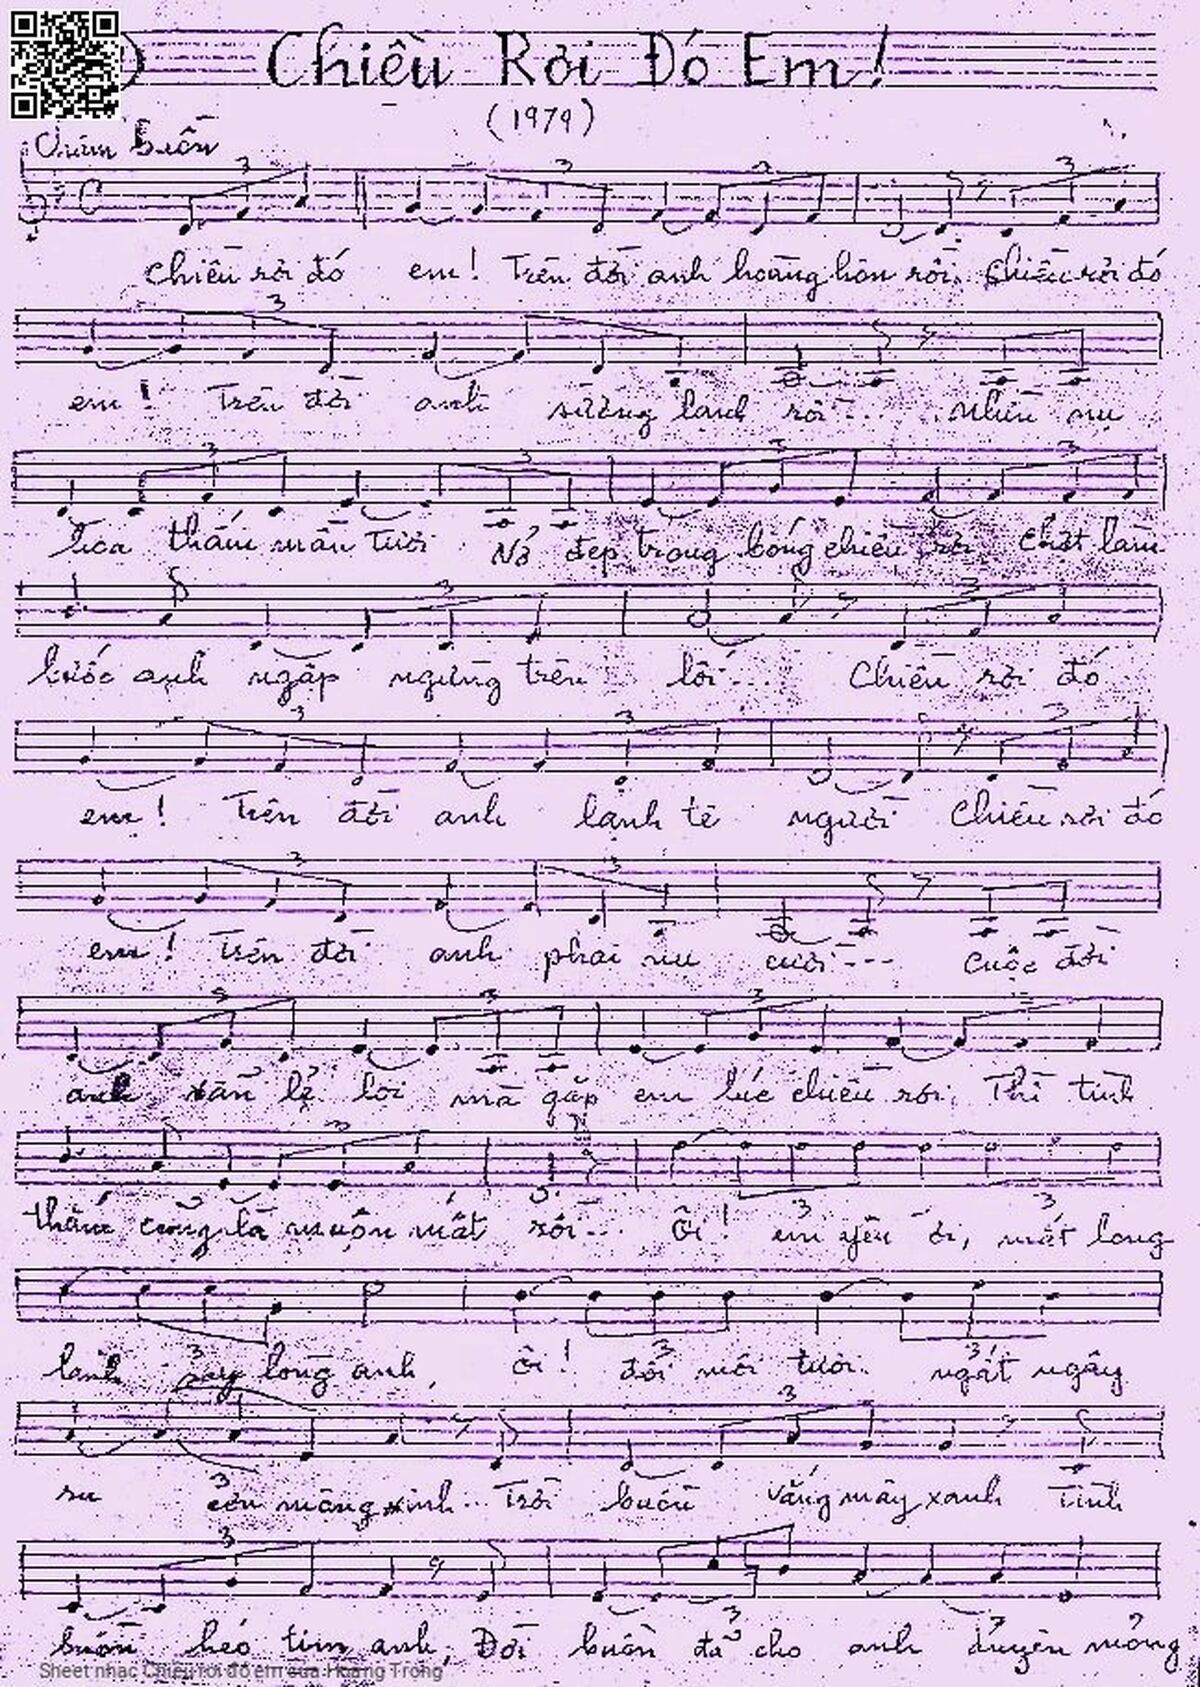 Chiều Rơi Đó Em!
(1979)
buồn
Chiều rơi đó em! Trên đời anh hoàng hôn rồi. Chiều rơi đó
em! Trên đời anh sương lạnh rơi... nhìn nụ
hoa thắm mãn tươi Nở đẹp trong bóng chiều rơi chợt làm
bước anh ngập ngừng trên lối... Chiều rơi đó
em! Trên đời anh lạnh tê người Chiều rơi đó
em! Trên đời anh phai nụ cười --- cuộc đời
anh vẫn lẻ loi mà gặp em lúc chiều rơi. Thì tình
thắm cũng là muộn mất rồi... Ôi! em yêu ơi, mắt long
lanh say lòng anh, ôi! đôi môi tươi. ngất ngây
ru cơn mộng xinh... Trời buồn vắng mây xanh Tình
buồn héo tim anh, Đời buồn đã cho anh duyên mộng
Sheet nhạc Chiều rơi đó em của Hoàng Trọng